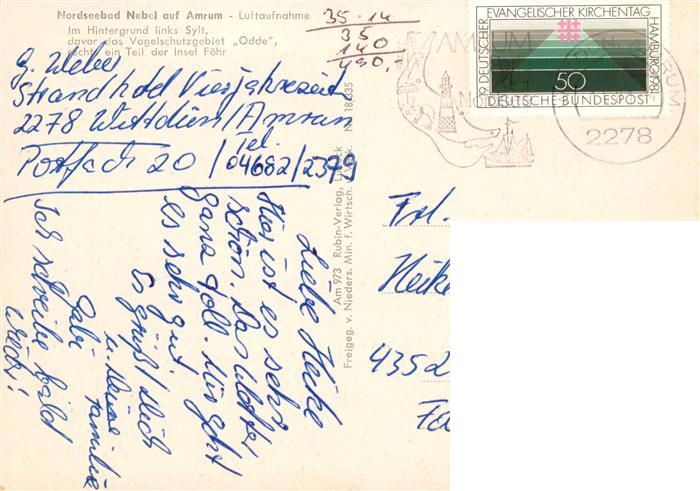 Nordseebad Nebel auf Amrum - Luftaufnahme
Im Hintergrund links Sylt,
davor das Vogelschutzgebiet „Odde",
rechts ein Teil der Insel Föhr
35.14
35
140
490,-
G. Weber
Strandhotel Vierjahrezeit
2278 Wittdün/Amrum
Tel.
Postfach 20 / 04682/2379
19. DEUTSCHER EVANGELISCHER KIRCHENTAG HAMBURG 1981
50
DEUTSCHE BUNDESPOST
AMRUM
2278
Am 973 Rubin-Verlag,
Freigeg. v. Nieders. Min. f. Wirtsch.
Liebe Heike
Hier ist es sehr
schön. Das Wetter
ganz toll. Mir geht
es sehr gut.
Es grüßt Dich
Gabi
u. Deine Familie
Ich schreibe bald
wieder!
Frl.
Heike
4352